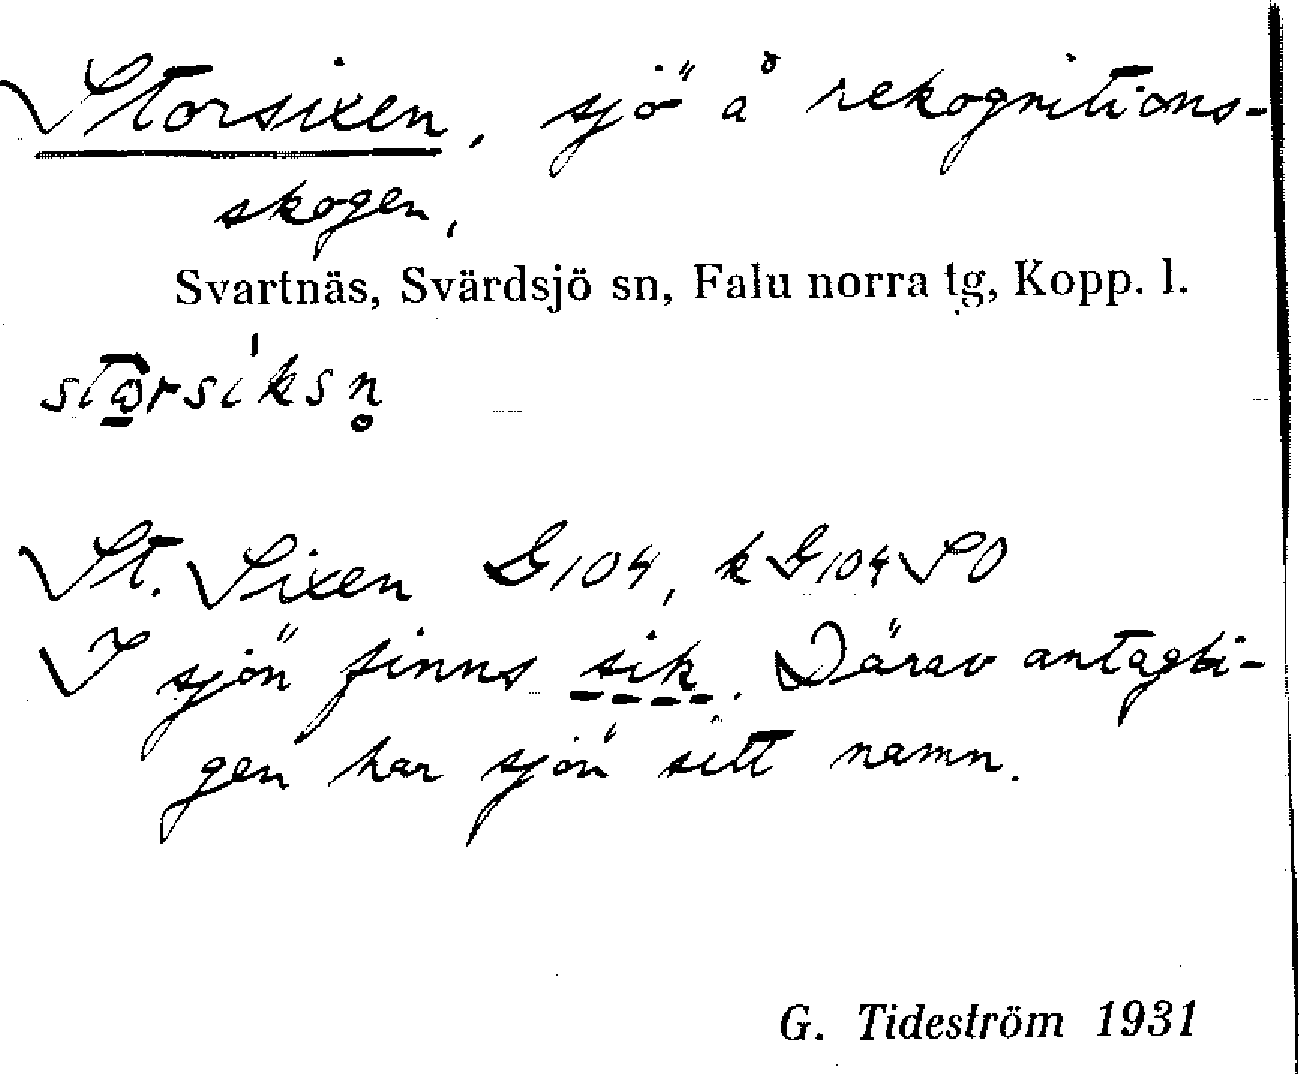 Storsixen, sjö å rekognitions-
skogen,
Svartnäs, Svärdsjö sn, Falu norra tg, Kopp. l.
storsiksn̥
St. Sixen G104, k G104 SO
I sjön finns sik. Därav antagli-
gen har sjön sitt namn.
G. Tideström 1931